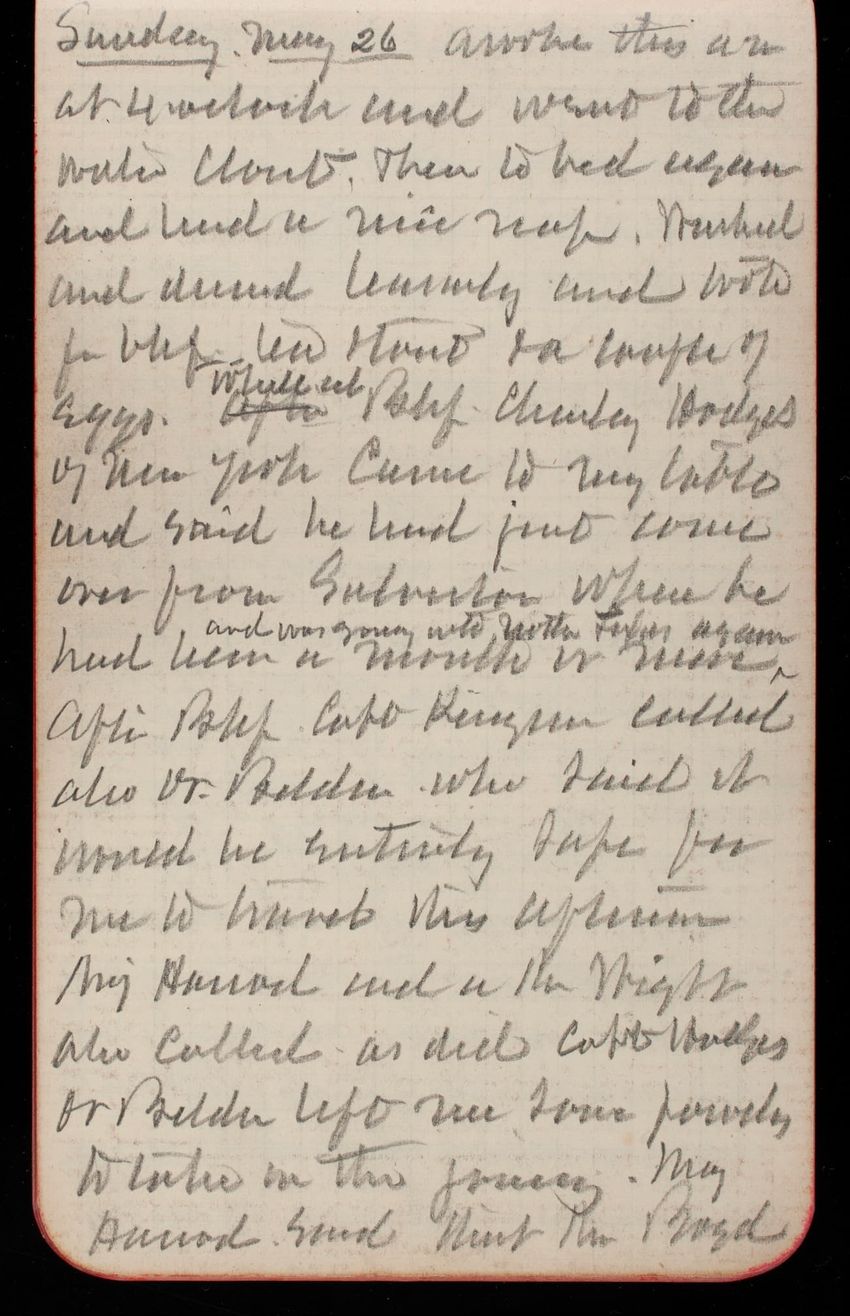 Sunday May 26 awoke this am
at 4 oclock and went to the
water Closet. Then to bed again
and had a nice nap. Washed
and dressed leisurely and took
for bkf tea toast & a couple of
eggs. While at Bkf Charley Hodges
of New York Came to my table
and said he had just come
over from Galveston where he
and was going into Northn Texas again
had been a month or more
After Bkf Capt Kingman called
also Dr. Belden who said it
would be entirely safe for
me to travel this afternoon
Maj Harrod and a Mr Wright
also called as did Capt Hodges
Dr Belden left me some powders
to take on the journey. Maj
Harrod said that Mr Boyd